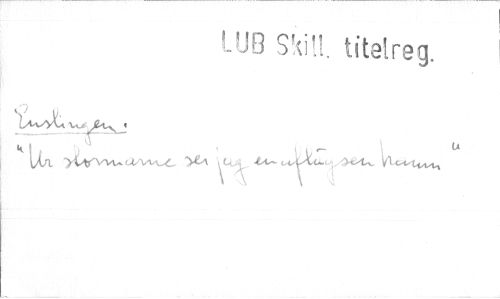 LUB Skill. titelreg.
Enslingen.
"Ur stormarne ser jag en aflägsen hamn"